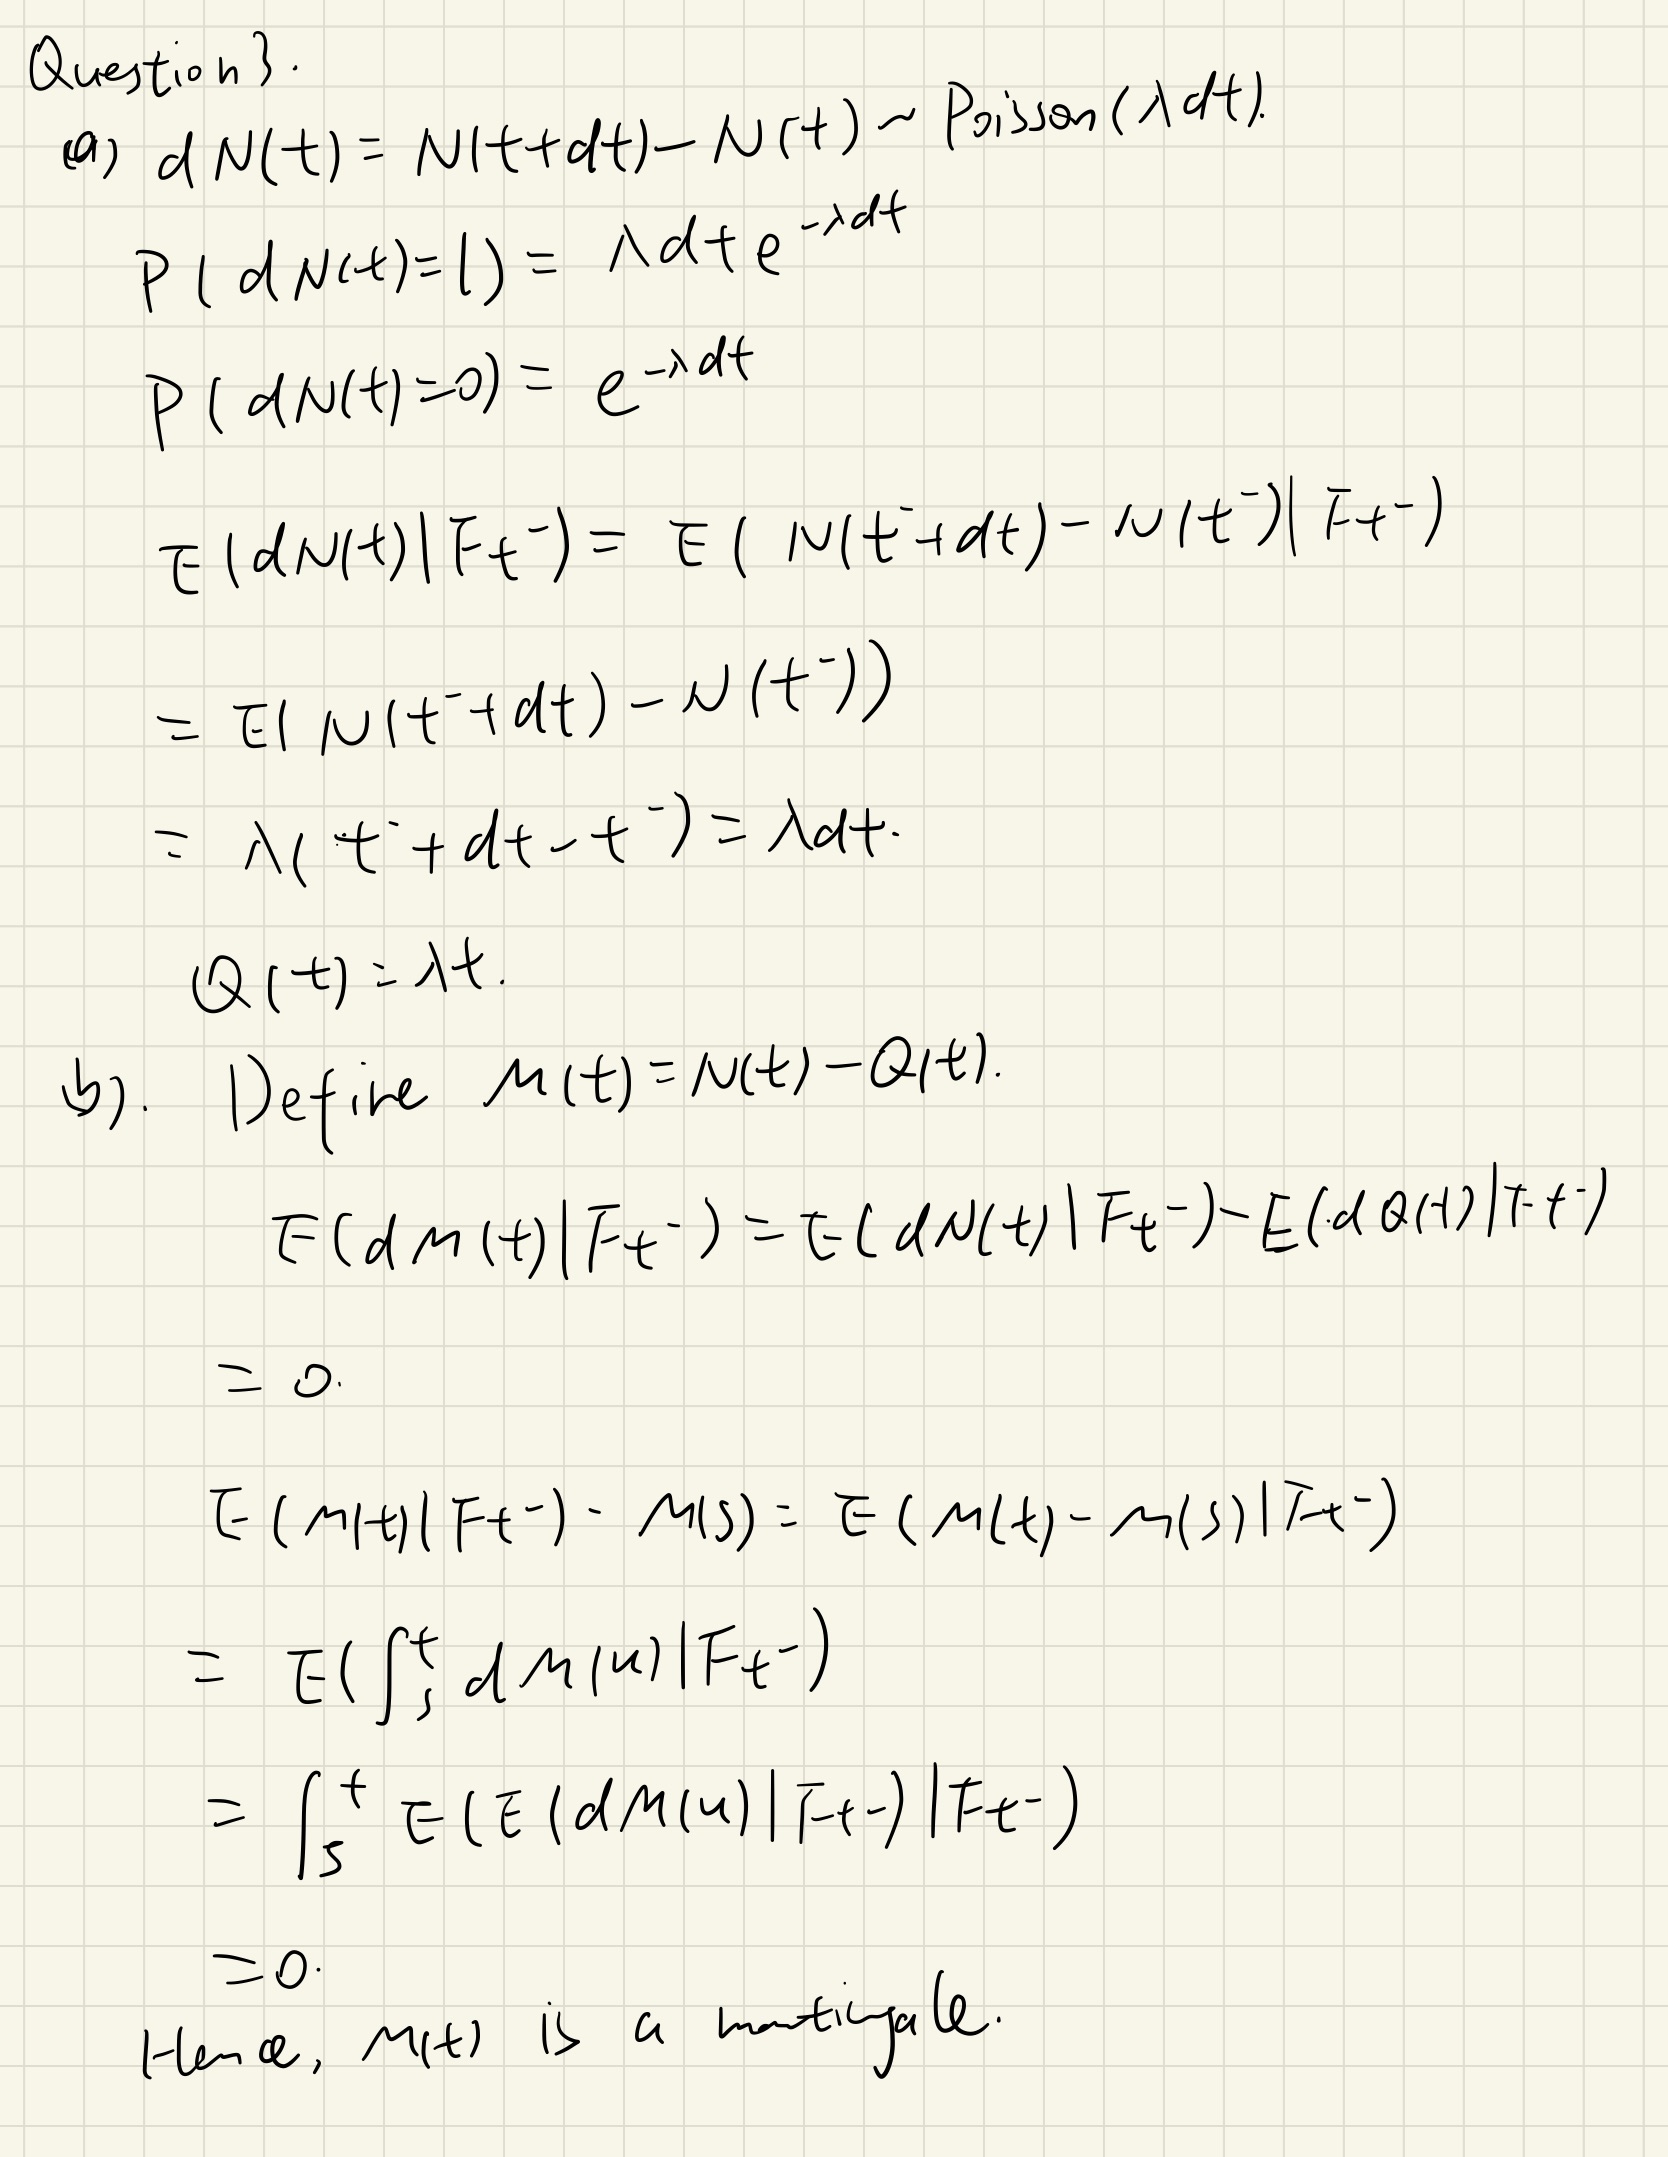 Question 3.
(a) dN(t) = N(t+dt) - N(t) ~ Poisson(λdt).
P(dN(t)=1) = λdt e^{-λdt}
P(dN(t)=0) = e^{-λdt}
E(dN(t)|F_{t^-}) = E(N(t^-+dt) - N(t^-)|F_{t^-})
= E(N(t^-+dt) - N(t^-))
= λ(t^-+dt-t^-) = λdt.
Q(t) = λt.
(b). Define M(t) = N(t) - Q(t).
E(dM(t)|F_{t^-}) = E(dN(t)|F_{t^-}) - E(dQ(t)|F_{t^-})
= 0.
E(M(t)|F_{t^-}) - M(s) = E(M(t) - M(s)|F_{t^-})
= E(∫_s^t dM(u)|F_{t^-})
= ∫_s^t E(E(dM(u)|F_{t^-})|F_{t^-})
= 0.
Hence, M(t) is a martingale.